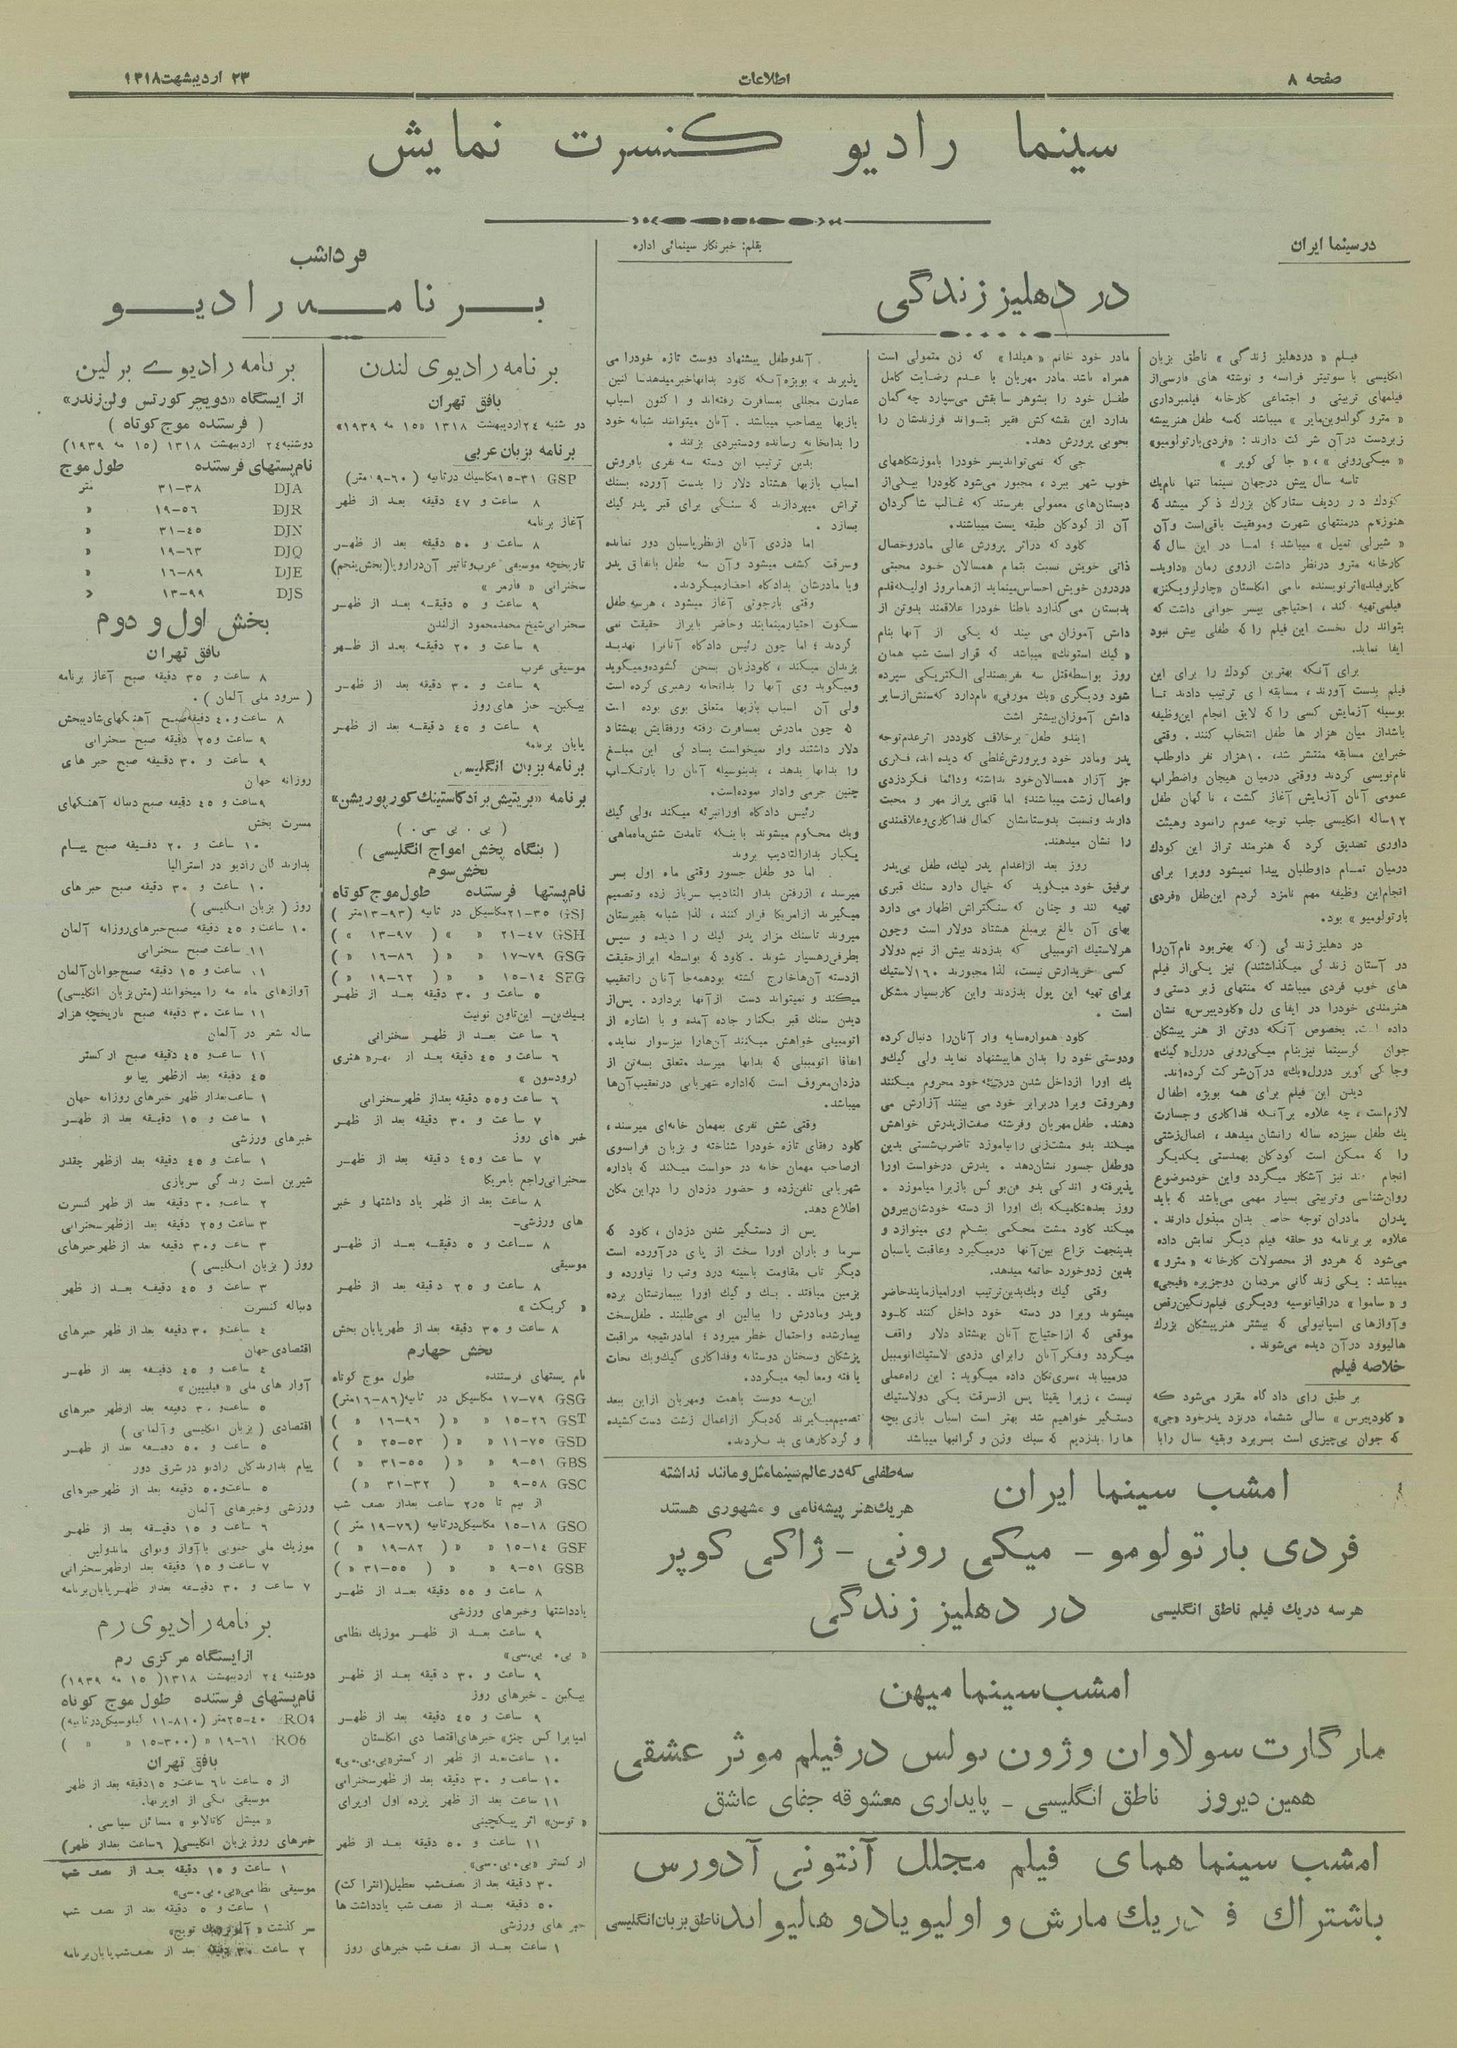 صفحه ۸
اطلاعات
۲۳ اردیبهشت ۱۳۱۸
سینما رادیو کنسرت نمایش
در سینما ایران
بقلم: خبرنگار سینمائی اداره
در دهلیز زندگی
فیلم « در دهلیز زندگی » ناطق بزبان
انگلیسی با سوتیتر فرانسه و نوشته های فارسی از
فیلمهای تربیتی و اجتماعی کارخانه فیلمبرداری
« مترو گولدوین مایر » میباشد که سه طفل هنرپیشه
زبردست در آن شرکت دارند: «فردی بارتولومیو»
« میکی رونی » ، « جاکی کوپر »
تا سه سال پیش در جهان سینما تنها نام یک
کودك در ردیف ستارگان بزرك ذکر میشد که
هنوز هم در منتهای شهرت و موفقیت باقی است و آن
« شیرلی تمپل » میباشد ؛ اما در این سال که
کارخانه مترو در نظر داشت از روی رمان «داوید
کاپرفیلد» اثر نویسنده نامی انگلستان «چارلز دیکنز»
فیلمی تهیه کند ، احتیاجی بپسر جوانی داشت که
بتواند رل نخست این فیلم را که طفلی بیش نبود
ایفا نماید.
برای آنکه بهترین کودك را برای این
فیلم بدست آورند ، مسابقه ای ترتیب دادند تا
بوسیله آزمایش کسی را که لایق انجام این وظیفه
باشد از میان هزارها طفل انتخاب کنند . وقتی
خبر این مسابقه منتشر شد، ۱۰ هزار نفر داوطلب
نام نویسی کردند و وقتی درمیان هیجان و اضطراب
عمومی آنان آزمایش آغاز گشت ، ناگهان طفل
۱۲ ساله انگلیسی جلب توجه عموم را نمود و هیئت
داوری تصدیق کرد که هنرمند تر از این کودك
درمیان تمام داوطلبان پیدا نمیشود و ویرا برای
انجام این وظیفه مهم نامزد کردم این طفل «فردی
بارتولومیو » بود.
در دهلیز زندگی ( که بهتر بود نام آن را
در آستان زندگی میگذاشتند) نیز یکی از فیلم
های خوب فردی میباشد که منتهای زبر دستی و
هنرمندی خود را در ایفای رل «کلودپیرس» نشان
داده است. بخصوص آنکه دو تن از هنر پیشگان
جوان دیگر سینما نیز بنام میکی رونی در رل «گیك»
و جاکی کوپر در رل «بك» در آن شرکت کرده‌اند.
دیدن این فیلم برای همه بویژه اطفال
لازم است ، چه علاوه بر آنکه فداکاری و جسارت
یك طفل سیزده ساله را نشان میدهد ، اعمال زشتی
را که ممکن است کودکان بهمدستی یکدیگر
انجام دهند نیز آشکار میگردد و این خود موضوع
روان شناسی و تربیتی بسیار مهمی می‌باشد که باید
پدران مادران توجه خاصی بدان مبذول دارند .
علاوه بر برنامه دو حلقه فیلم دیگر نمایش داده
می‌شود که هر دو از محصولات کارخانه « مترو »
میباشد : یکی زندگانی مردمان دو جزیره «فیجی»
و « ساموا » در اقیانوسیه و دیگری فیلم رنگین رقص
و آوازهای اسپانیولی که بیشتر هنرپیشگان بزرك
هالیوود در آن دیده می‌شوند .
خلاصه فیلم
بر طبق رای دادگاه مقرر می‌شود که
« کلودپیرس » سالی ششماه در نزد پدر خود «جی»
که جوان بی چیزی است بسر برد و بقیه سال را با
مادر خود خانم «هیلدا» که زن متمولی است
همراه باشد مادر مهربان با عدم رضایت کامل
طفل خود را بشوهر سابقش می‌سپارد چه گمان
ندارد این نقشه کش فقیر بتواند فرزندشان را
بخوبی پرورش دهد.
جی که نمی‌تواند پسر خود را باموزشگاههای
خوب شهر ببرد ، مجبور می‌شود کلود را بیکی از
دبستانهای معمولی بفرستد که غالب شاگردان
آن از کودکان طبقه پست میباشند.
کلود که در اثر پرورش عالی مادر و خصال
ذاتی خویش نسبت بتمام همسالان خود محبتی
در درون خویش احساس مینماید از همان روز اول که قدم
بدبستان می گذارد باطنا خود را علاقمند بدو تن از
دانش آموزان می بیند که یکی از آنها بنام
« گیك استونك» میباشد که قرار است شب همان
روز بواسطه قتل سه نفر بصندلی الکتریکی سپرده
شود و دیگری «بك مورفی» نام دارد که سنش از سایر
دانش آموزان بیشتر است
ایندو طفل بر خلاف کلود در اثر عدم توجه
پدر و مادر خود و پرورش غلطی که دیده اند، فکری
جز آزار همسالان خود نداشته و دائما فکر دزدی
و اعمال زشت میباشند؛ اما قلبی پر از مهر و محبت
دارند و نسبت بدوستانشان کمال فداکاری و علاقمندی
را نشان میدهند.
روز بعد از اعدام پدر گیك، طفل بی پدر
برفیق خود میگوید که خیال دارد سنك قبری
تهیه کند و چنان که سنگتراش اظهار می دارد
بهای آن بالغ بر مبلغ هشتاد دولار است و چون
هر لاستیك اتومبیلی که بدزدند بیش از نیم دولار
کسی خریدارش نیست، لذا مجبورند ۱۶۰ لاستیك
برای تهیه این پول بدزدند و این کار بسیار مشکل
است .
کلود همواره سایه وار آنان را دنبال کرده
و دوستی خود را بدان ها پیشنهاد نماید ولی گیك و
بك او را از داخل شدن در دسته خود محروم میکنند
و هر وقت ویرا در برابر خود می بینند آزارش می
دهند. طفل مهربان و فرشته صفت از پدرش خواهش
میکند بدو مشت زنی را بیاموزد تا ضرب شستی بدین
دو طفل جسور نشان دهد . پدرش درخواست او را
پذیرفته و اندکی بدو فن بوکس بازی را میاموزد .
روز بعد هنگامیکه بك او را از دسته خودشان بیرون
میکند کلود مشت محکمی بشکم وی مینوازد و
بدینجهت نزاع بین آنها در میگیرد و عاقبت پاسبان
بدین زد و خورد خاتمه میدهد.
وقتی گیك و بك بدین ترتیب او را میازمایند حاضر
میشوند ویرا در دسته خود داخل کنند کلود
موقعی که از احتیاج آنان بهشتاد دلار واقف
میگردد و فکر آنان را برای دزدی لاستیك اتومبیل
درمییابد ، سری تکان داده میگوید : این راه عملی
نیست ، زیرا یقینا پس از سرقت یکی دو لاستیك
دستگیر خواهیم شد بهتر است اسباب بازی بچه
ها را بدزدیم که سبك وزن و گرانبها میباشد
آندو طفل پیشنهاد دوست تازه خود را می
پذیرند ، بویژه آنکه کلود بدانها خبر میدهد ساکنین
عمارت مجللی بمسافرت رفته‌اند و اکنون اسباب
بازیها بیصاحب میباشد . آنان میتوانند شبانه خود
را بدانخانه رسانده و دستبردی بزنند .
بدین ترتیب این دسته سه نفری با فروش
اسباب بازیها هشتاد دلار را بدست آورده بسنك
تراش میپردازند که سنگی برای قبر پدر گیك
بسازد .
اما دزدی آنان از نظر پاسبان دور نمانده
و سرقت کشف میشود و آن سه طفل باتفاق پدر
و یا مادرشان بدادگاه احضار میگردند.
وقتی بازجوئی آغاز میشود ، هر سه طفل
سکوت اختیار مینمایند و حاضر بابراز حقیقت نمی
گردند ؛ اما چون رئیس دادگاه آنانرا تهدید
بزندان میکند ، کلود زبان بسخن گشوده و میگوید
ومیگوید وی آنها را بدانخانه رهبری کرده است
ولی آن اسباب بازیها متعلق بوی بوده است
که چون مادرش بمسافرت رفته و رفقایش بهشتاد
دلار داشتند و او نمیخواست بسادگی این مبلغ
را بدانها بدهد ، بدینوسیله آنان را بارتکاب
چنین جرمی وادار نموده است.
رئیس دادگاه او را تبرئه میکند ، ولی گیك
و بك محکوم میشوند باینکه تا مدت شش ماه ماهی
یکبار بدارالتادیب بروند
اما دو طفل جسور وقتی ماه اول بسر
میرسد ، از رفتن بدار التادیب سرباز زده و تصمیم
میگیرند از امریکا فرار کنند ، لذا شبانه بقبرستان
میروند تا سنك مزار پدر گیك را دیده و سپس
بطرفی رهسپار شوند . کلود که بواسطه ابراز حقیقت
از دسته آن ها خارج گشته بود همه جا آنان را تعقیب
میکند و نمیتواند دست از آنها بردارد . پس از
دیدن سنك قبر بکنار جاده آمده و با اشاره از
اتومبیلی خواهش میکنند آن ها را نیز سوار نماید.
اتفاقا اتومبیلی که بدانها میرسد متعلق بسه تن از
دزدان معروف است که اداره شهربانی در تعقیب آن ها
میباشد.
وقتی شش نفری بمهمان خانه ای میرسند ،
کلود رفقای تازه خود را شناخته و بزبان فرانسوی
از صاحب مهمان خانه در خواست میکند که باداره
شهربانی تلفن زده و حضور دزدان را در این مکان
اطلاع دهد.
پس از دستگیر شدن دزدان ، کلود که
سرما و باران او را سخت از پای درآورده است
دیگر تاب مقاومت با سینه درد و تب را نیاورده و
بزمین میافتد . بك و گیك او را ببیمارستان برده
و پدر و مادرش را ببالین او می‌طلبند . طفل سخت
بیمار شده و احتمال خطر میرود ؛ اما در نتیجه مراقبت
پزشکان و سخنان دوستانه و فداکاری گیك و بك نجات
یافته و معالجه میگردد.
این سه دوست باهمت و مهربان از این ببعد
تصمیم میگیرند که دیگر از اعمال زشت دست کشیده
و گرد کارهای بد نگردند.
فردا شب
برنامه رادیو
برنامه رادیوی لندن
بافق تهران
دو شنبه ۲۴ اردیبهشت ۱۳۱۸ «۱۵ مه ۱۹۳۹»
برنامه بزبان عربی
GSP ۱۵-۳۱ مگاسیك در ثانیه (۱۹-۶۰ متر)
۸ ساعت و ۴۷ دقیقه بعد از ظهر
آغاز برنامه
۸ ساعت و ۵۰ دقیقه بعد از ظهر
تاریخچه موسیقی عرب و تاثیر آن در اروپا (بخش پنجم)
سخنرانی « فارمر »
۹ ساعت و ۵ دقیقه بعد از ظهر
سخنرانی شیخ محمد محمود از لندن
۹ ساعت و ۲۰ دقیقه بعد از ظهر
موسیقی عرب
۹ ساعت و ۳۰ دقیقه بعد از ظهر
بیگبن- خبر های روز
۹ ساعت و ۴۵ دقیقه بعد از ظهر
پایان برنامه
برنامه بزبان انگلیسی
برنامه «بریتیش برادکاستینك کورپوریشن»
( بی . بی سی . )
( بنگاه پخش امواج انگلیسی )
بخش سوم
نام پستها فرستنده طول موج کوتاه
GSJ ۲۱-۳۵ مگاسیکل در ثانیه (۱۳-۹۳ متر )
GSH ۲۱-۴۷ » » ( ۱۳-۹۷ » )
GSG ۱۷-۷۹ » » (۱۶-۸۶ » )
SFG ۱۵-۱۴ » » (۱۹-۶۲ » )
۵ ساعت و ۳۰ دقیقه بعد از ظهر
بیك بن- این تاون تونیت
۶ ساعت بعد از ظهر سخنرانی
۶ ساعت و ۴۵ دقیقه بعد از ظهر « هنری
۶ ساعت و ۵۵ دقیقه بعد از ظهر سخنرانی
۷ ساعت و ۳۰ دقیقه بعد از ظهر
خبر های روز
۷ ساعت و ۴۵ دقیقه بعد از ظهر
سخنرانی راجع بامریکا
۸ ساعت بعد از ظهر یاد داشتها و خبر
های ورزشی-
۸ ساعت و ۵ دقیقه بعد از ظهر
موسیقی
۸ ساعت و ۲۵ دقیقه بعد از ظهر
« کریکت »
۸ ساعت و ۳۰ دقیقه بعد از ظهر پایان بخش
بخش چهارم
نام پستهای فرستنده طول موج کوتاه
GSG ۱۷-۷۹ مگاسیکل در ثانیه (۱۶-۸۶ متر)
GST ۱۵-۲۶ » » (۱۶-۹۶ » )
GSD ۱۱-۷۵ » » (۲۵-۵۳ » )
GBS ۹-۵۱ » » (۳۱-۵۵ » )
GSC ۹-۵۸ » ( ۳۱-۳۲ » )
از نیم تا ۲٫۵ ساعت بعد از نصف شب
GSO ۱۵-۱۸ مگاسیکل در ثانیه (۱۹-۷۶ متر )
GSF ۱۵-۱۴ » » (۱۹-۸۲ » )
GSB ۹-۵۱ » » (۳۱-۵۵ » )
۸ ساعت و ۵۵ دقیقه بعد از ظهر
یادداشتها و خبرهای ورزشی
۹ ساعت بعد از ظهر موزیك نظامی
« بی. بی.سی»
۹ ساعت و ۳۰ دقیقه بعد از ظهر
بیگبن - خبرهای روز
۹ ساعت و ۴۵ دقیقه بعد از ظهر
خبرهای اقتصادی انگلستان
۱۰ ساعت بعد از ظهر ارکستر «بی.بی.سی»
۱۰ ساعت و ۳۰ دقیقه بعد از ظهر سخنرانی
۱۱ ساعت بعد از ظهر پرده اول اوپرای
« توسن» اثر پیکچینی
۱۱ ساعت و ۵۰ دقیقه بعد از ظهر
ارکستر «بی.بی.سی»
۳۰ دقیقه بعد از نصف شب تعطیل (انتراکت)
۵۰ دقیقه بعد از نصف شب یادداشت ها
خبر های ورزشی
۱ ساعت بعد از نصف شب خبرهای روز
برنامه رادیوی برلین
از ایستگاه «دویچر کورتس ولن زندر»
( فرستنده موج کوتاه )
دوشنبه ۲۴ اردیبهشت ۱۳۱۸ (۱۵ مه ۱۹۳۹)
نام پستهای فرستنده طول موج
DJA ۳۱-۳۸ متر
DJR ۱۹-۵۶ »
DJN ۳۱-۴۵ »
DJQ ۱۹-۶۳ »
DJE ۱۶-۸۹ »
DJS ۱۳-۹۹ »
بخش اول و دوم
بافق تهران
۸ ساعت و ۳۵ دقیقه صبح آغاز برنامه
( سرود ملی آلمان ) .
۸ ساعت و ۴۰ دقیقه صبح آهنگهای شادیبخش
۹ ساعت و ۲۵ دقیقه صبح سخنرانی
۹ ساعت و ۳۰ دقیقه صبح خبر های
روزانه جهان
۹ ساعت و ۴۵ دقیقه صبح دنباله آهنگهای
مسرت بخش
۱۰ ساعت و ۲۰ دقیقه صبح پیام
بدارندگان رادیو در استرالیا
۱۰ ساعت و ۳۰ دقیقه صبح خبر های
روز ( بزبان انگلیسی )
۱۰ ساعت و ۴۵ دقیقه صبح خبرهای روزانه آلمان
۱۱ ساعت صبح سخنرانی
۱۱ ساعت و ۱۵ دقیقه صبح جوانان آلمان
آوازهای ماه مه را میخوانند (متن بزبان انگلیسی)
۱۱ ساعت و ۳۰ دقیقه صبح تاریخچه هزار
ساله شعر در آلمان
۱۱ ساعت و ۴۵ دقیقه صبح ارکستر
۴۵ دقیقه بعد از ظهر پیانو
۱ ساعت بعد از ظهر خبرهای روزانه جهان
۱ ساعت و ۱۵ دقیقه بعد از ظهر
خبرهای ورزشی
۱ ساعت و ۴۵ دقیقه بعد از ظهر چقدر
شیرین است زندگی سربازی
۲ ساعت و ۳۰ دقیقه بعد از ظهر کنسرت
۳ ساعت و ۲۵ دقیقه بعد از ظهر سخنرانی
۳ ساعت و ۳۰ دقیقه بعد از ظهر خبرهای
روز ( بزبان انگلیسی )
۳ ساعت و ۴۵ دقیقه بعد از ظهر
دنباله کنسرت
۴ ساعت و ۳۰ دقیقه بعد از ظهر خبرهای
اقتصادی جهان
۴ ساعت و ۴۵ دقیقه بعد از ظهر
آواز های ملی « فیلیپین »
۵ ساعت و ۳۰ دقیقه بعد از ظهر خبرهای
اقتصادی ( بزبان انگلیسی و آلمانی )
۵ ساعت و ۵۰ دقیقه بعد از ظهر
پیام بدارندگان رادیو در شرق دور
۵ ساعت و ۵۰ دقیقه بعد از ظهر خبرهای
ورزشی و خبرهای آلمان
۶ ساعت و ۱۵ دقیقه بعد از ظهر
موزیك ملی جنوبی با آواز و نوای ماندولین
۷ ساعت و ۱۵ دقیقه بعد از ظهر سخنرانی
۷ ساعت و ۳۰ دقیقه بعد از ظهر پایان برنامه
برنامه رادیوی رم
از ایستگاه مرکزی رم
دوشنبه ۲۴ اردیبهشت ۱۳۱۸ (۱۵ مه ۱۹۳۹)
نام پستهای فرستنده طول موج کوتاه
RO4 ۲۵-۴۰ متر (۱۱-۸۱۰ کیلوسیکل در ثانیه)
RO6 ۱۹-۶۱ » (۱۵-۳۰۰ » » )
بافق تهران
از ۵ ساعت تا ۶ ساعت و ۱۵ دقیقه بعد از ظهر
موسیقی یکی از اوپراها.
« میشل کاتالانو » مسائل سیاسی .
خبرهای روز بزبان انگلیسی (۶ ساعت بعد از ظهر)
۱ ساعت و ۱۵ دقیقه بعد از نصف شب
موسیقی نظامی «بی.بی.سی»
۱ ساعت و ۵۰ دقیقه بعد از نصف شب
سر گذشت
۲ ساعت ۳۰ دقیقه بعد از نصف شب پایان برنامه
امشب سینما ایران
سه طفلی که در عالم سینما مثل و مانند نداشته
هریك هنر پیشه نامی و مشهوری هستند
فردی بارتولومو - میکی رونی - ژاکی کوپر
هر سه در یك فیلم ناطق انگلیسی
در دهلیز زندگی
امشب سینما میهن
مارگارت سولاوان وژون بولس در فیلم موثر عشقی
همین دیروز ناطق انگلیسی - پایداری معشوقه جفای عاشق
امشب سینما همای فیلم مجلل آنتونی آدورس
باشتراك فردریك مارش و اولیویادو هالیواند ناطق بزبان انگلیسی